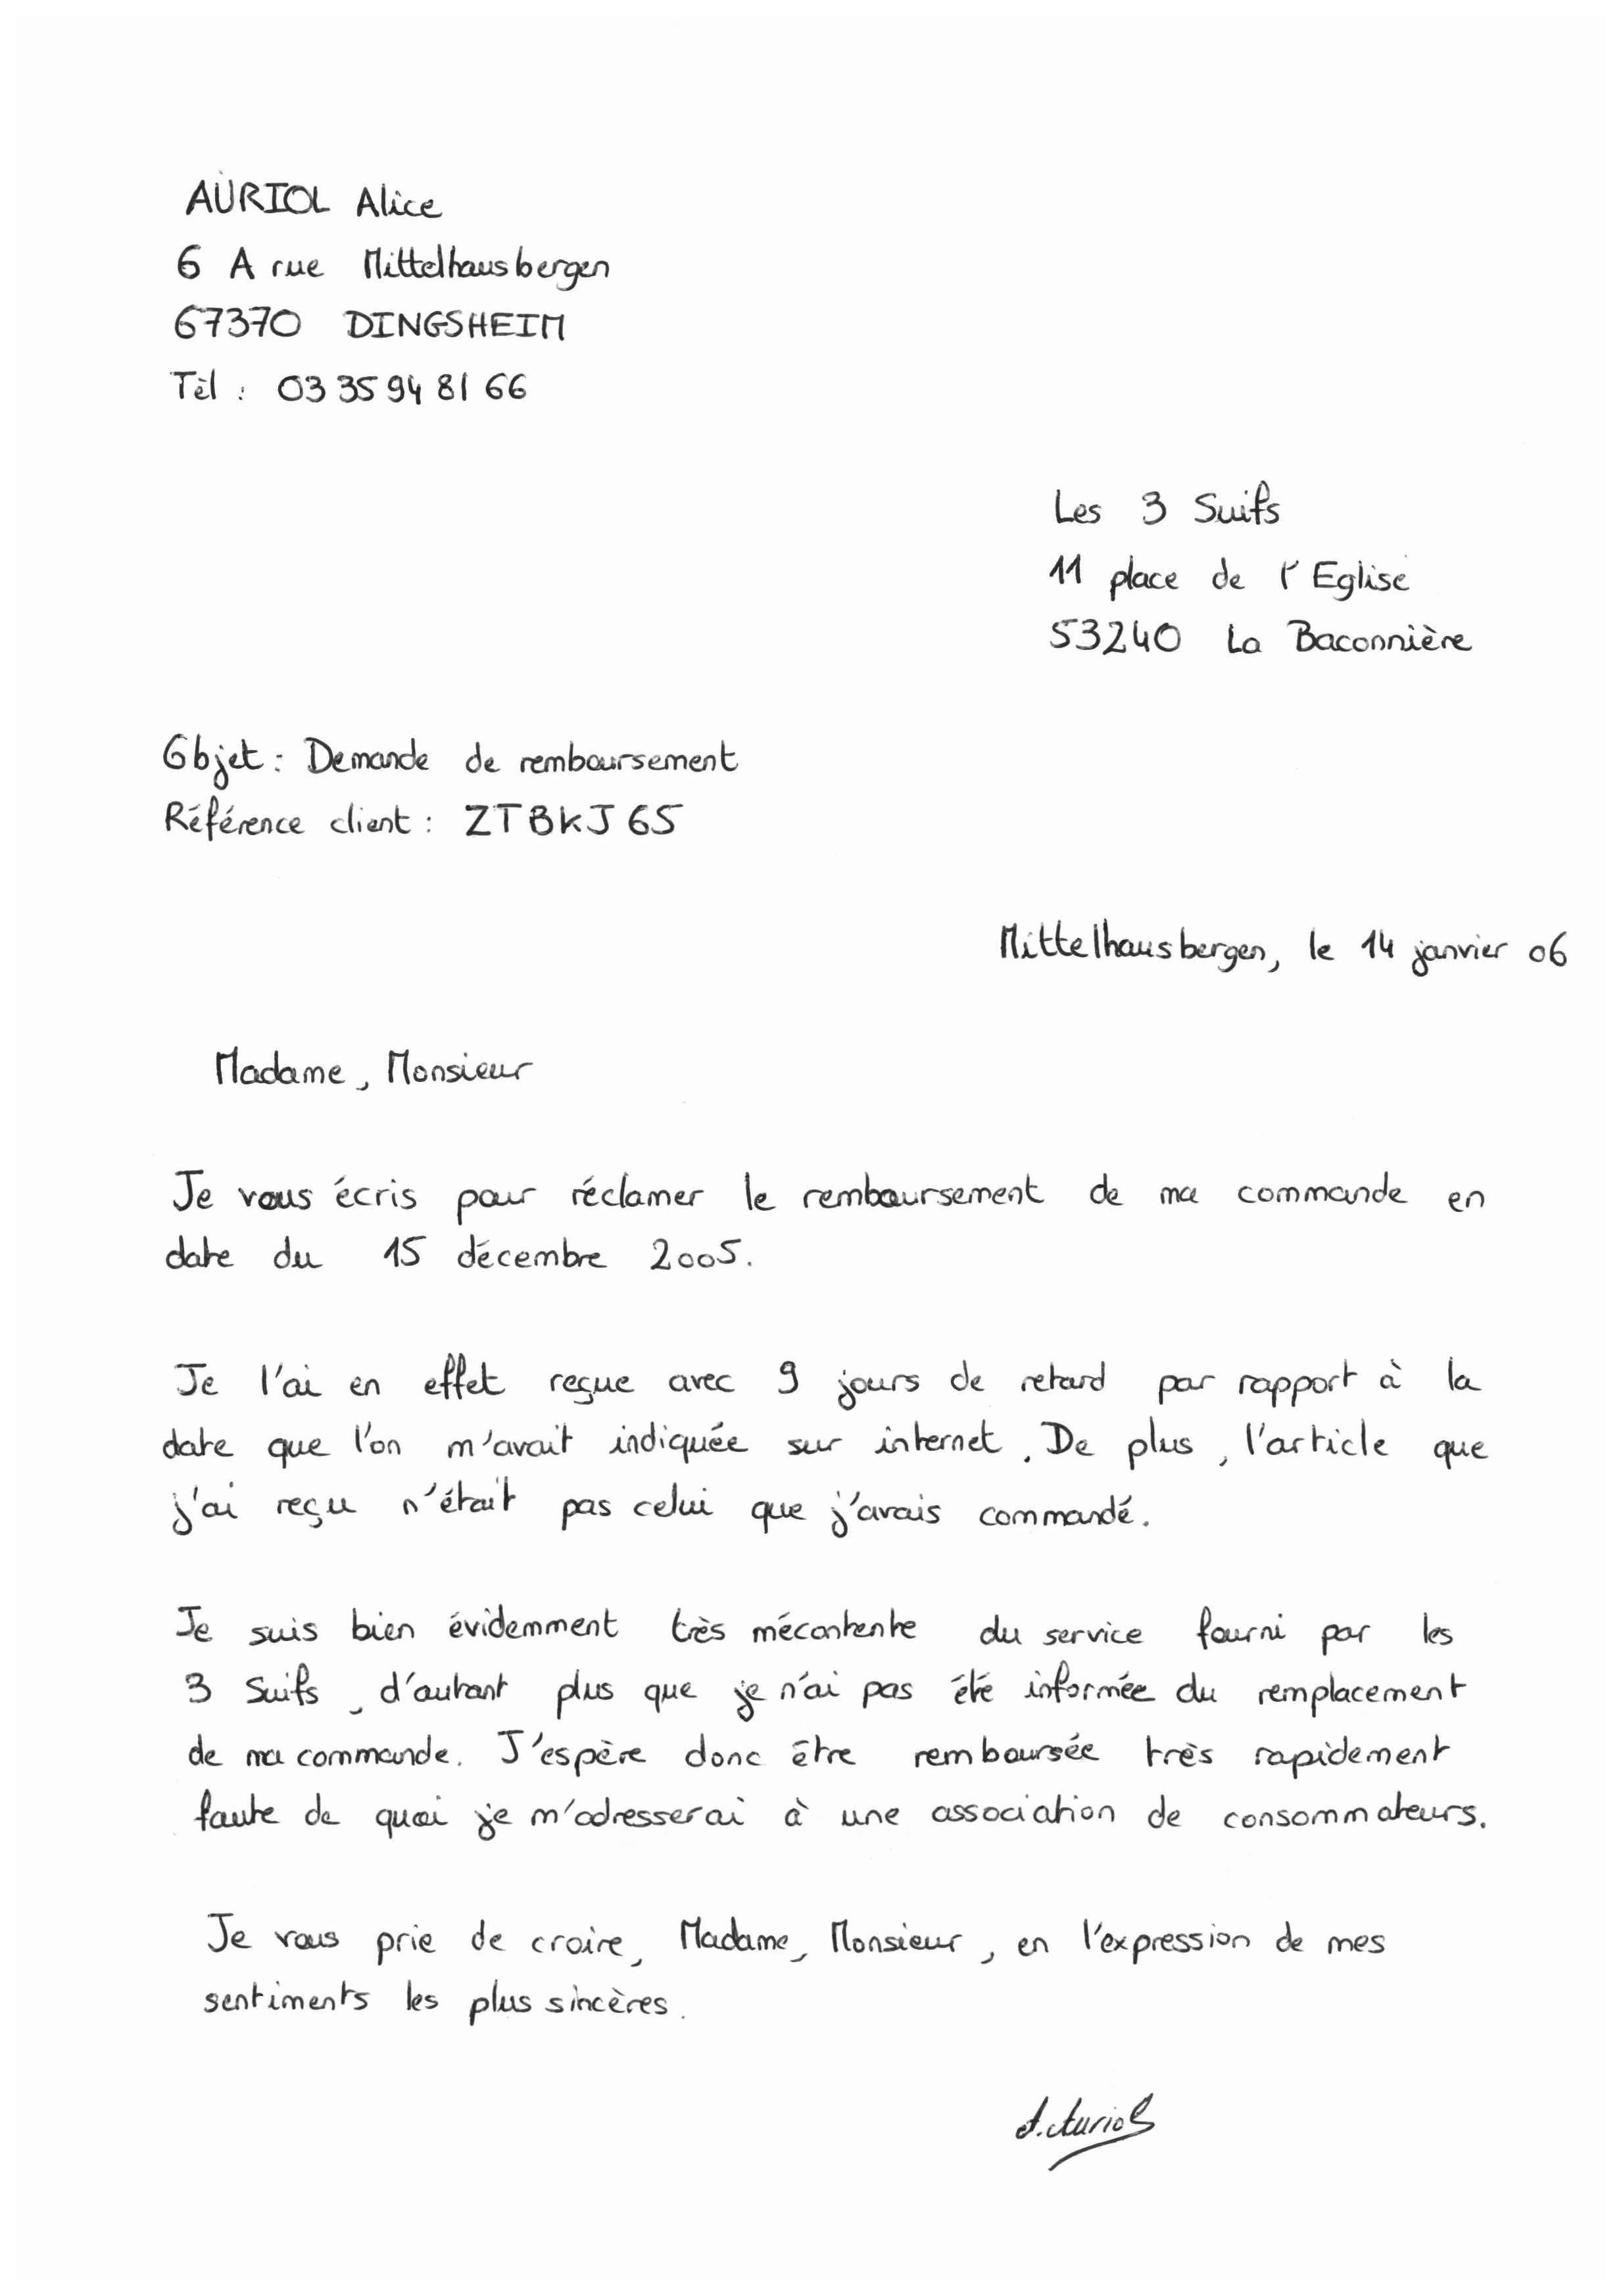 AURIOL Alice
6 A rue Mittelhausbergen
67370 DINGSHEIM
Tèl : 03 35 94 81 66
Les 3 Suifs
11 place de l'Eglise
53240 La Baconnière
Objet : Demande de remboursement
Référence client : ZTBKJ65
Mittelhausbergen, le 14 janvier 06
Madame, Monsieur
Je vous écris pour réclamer le remboursement de ma commande en
date du 15 décembre 2005.
Je l'ai en effet reçue avec 9 jours de retard par rapport à la
date que l'on m'avait indiquée sur internet. De plus, l'article que
j'ai reçu n'était pas celui que j'avais commandé.
Je suis bien évidemment très mécontente du service fourni par les
3 Suifs, d'autant plus que je n'ai pas été informée du remplacement
de ma commande. J'espère donc être remboursée très rapidement
faute de quoi je m'adresserai à une association de consommateurs.
Je vous prie de croire, Madame, Monsieur, en l'expression de mes
sentiments les plus sincères.
A. Auriol